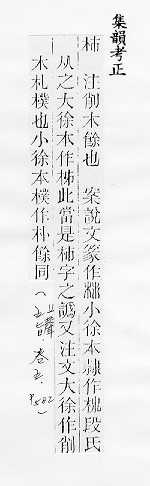 集韻考正
柿 注削木餘也 案說文篆作小徐本隸作段氏
从之大徐本作梯此當是柿字之譌又注文大徐作削
木札樸也小徐本樸作朴餘同(卷五 P582)